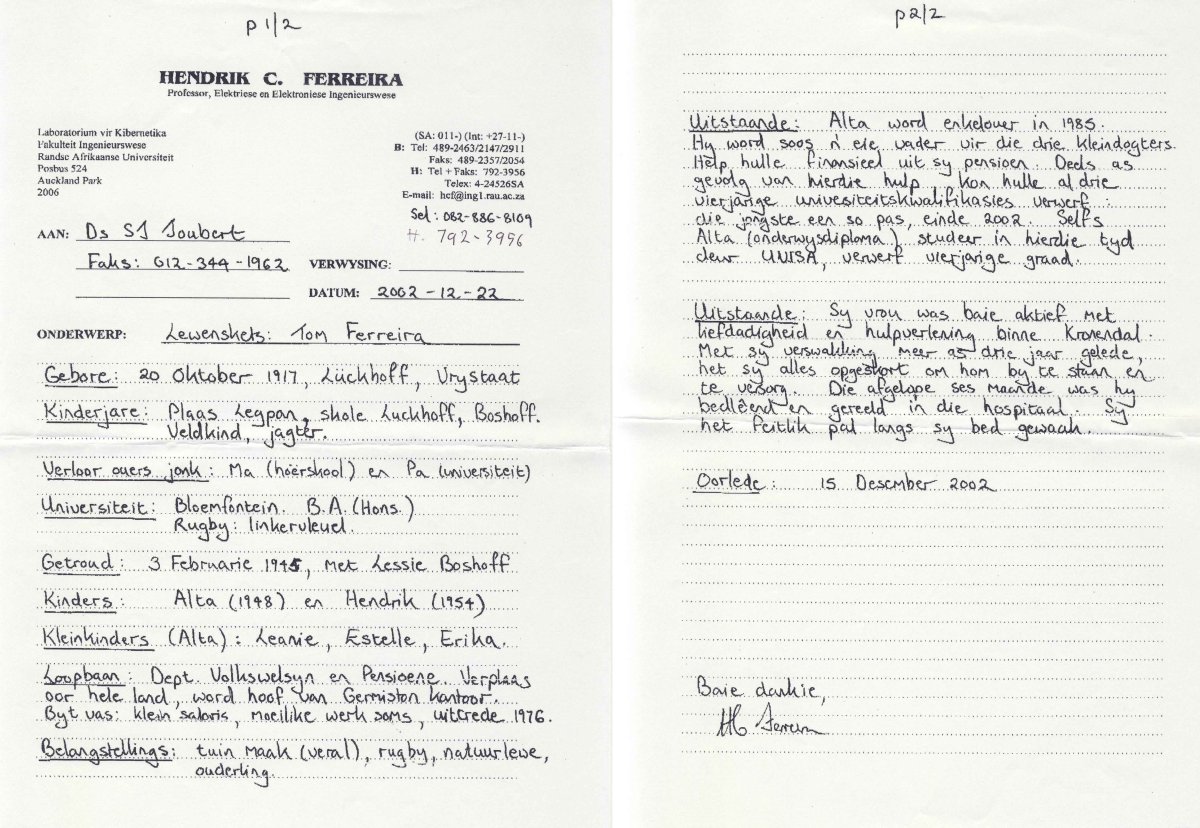 p 1/2
HENDRIK C. FERREIRA
Professor, Elektriese en Elektroniese Ingenieurswese
Laboratorium vir Kibernetika
Fakulteit Ingenieurswese
Randse Afrikaanse Universiteit
Posbus 524
Auckland Park
2006
(SA: 011-) (Int: +27-11-)
B: Tel: 489-2463/2147/2911
Faks: 489-2357/2054
H: Tel + Faks: 792-3956
Telex: 4-24526SA
E-mail: hcf@ing1.rau.ac.za
Sel: 082-886-8109
H. 792-3956
AAN: Ds SJ Joubert
Faks: 012-344-1962
VERWYSING:
DATUM: 2002-12-22
ONDERWERP: Lewenskets: Tom Ferreira
Gebore: 20 Oktober 1917, Luckhoff, Vrystaat
Kinderjare: Plaas Legpan, skole Luckhoff, Boshoff.
Veldkind, jagter.
Verloor ouers jonk: Ma (hoërskool) en Pa (universiteit)
Universiteit: Bloemfontein. B.A. (Hons.)
Rugby: linkervleuel.
Getroud: 3 Februarie 1945, met Lessie Boshoff
Kinders: Alta (1948) en Hendrik (1954)
Kleinkinders (Alta): Leanie, Estelle, Erika.
Loopbaan: Dept. Volkswelsyn en Pensioene. Verplaas
oor hele land, word hoof van Germiston kantoor.
Byt vas: klein salaris, moeilike werk soms, uitgetrede 1976.
Belangstellings: tuin maak (veral), rugby, natuurlewe,
ouderling.
p 2/2
Uitstaande: Alta word enkelouer in 1985.
Hy word soos n' eie vader vir die drie kleindogters.
Help hulle finansieel uit sy pensioen. Deels as
gevolg van hierdie hulp, kon hulle al drie
vierjarige univesiteitskwalifikasies verwerf:
die jongste een so pas, einde 2002. Selfs
Alta (onderwysdiploma) studeer in hierdie tyd
deur UNISA, verwerf vierjarige graad.
Uitstaande: Sy vrou was baie aktief met
liefdadigheid en hulpverlening binne Kronendal.
Met sy verswakking meer as drie jaar gelede,
het sy alles opgeskort om hom by te staan en
te versorg. Die afgelope ses maande was hy
bedlêend en gereeld in die hospitaal. Sy
het feitlik pal langs sy bed gewaak.
Oorlede: 15 Desember 2002
Baie dankie,
HC Ferreira